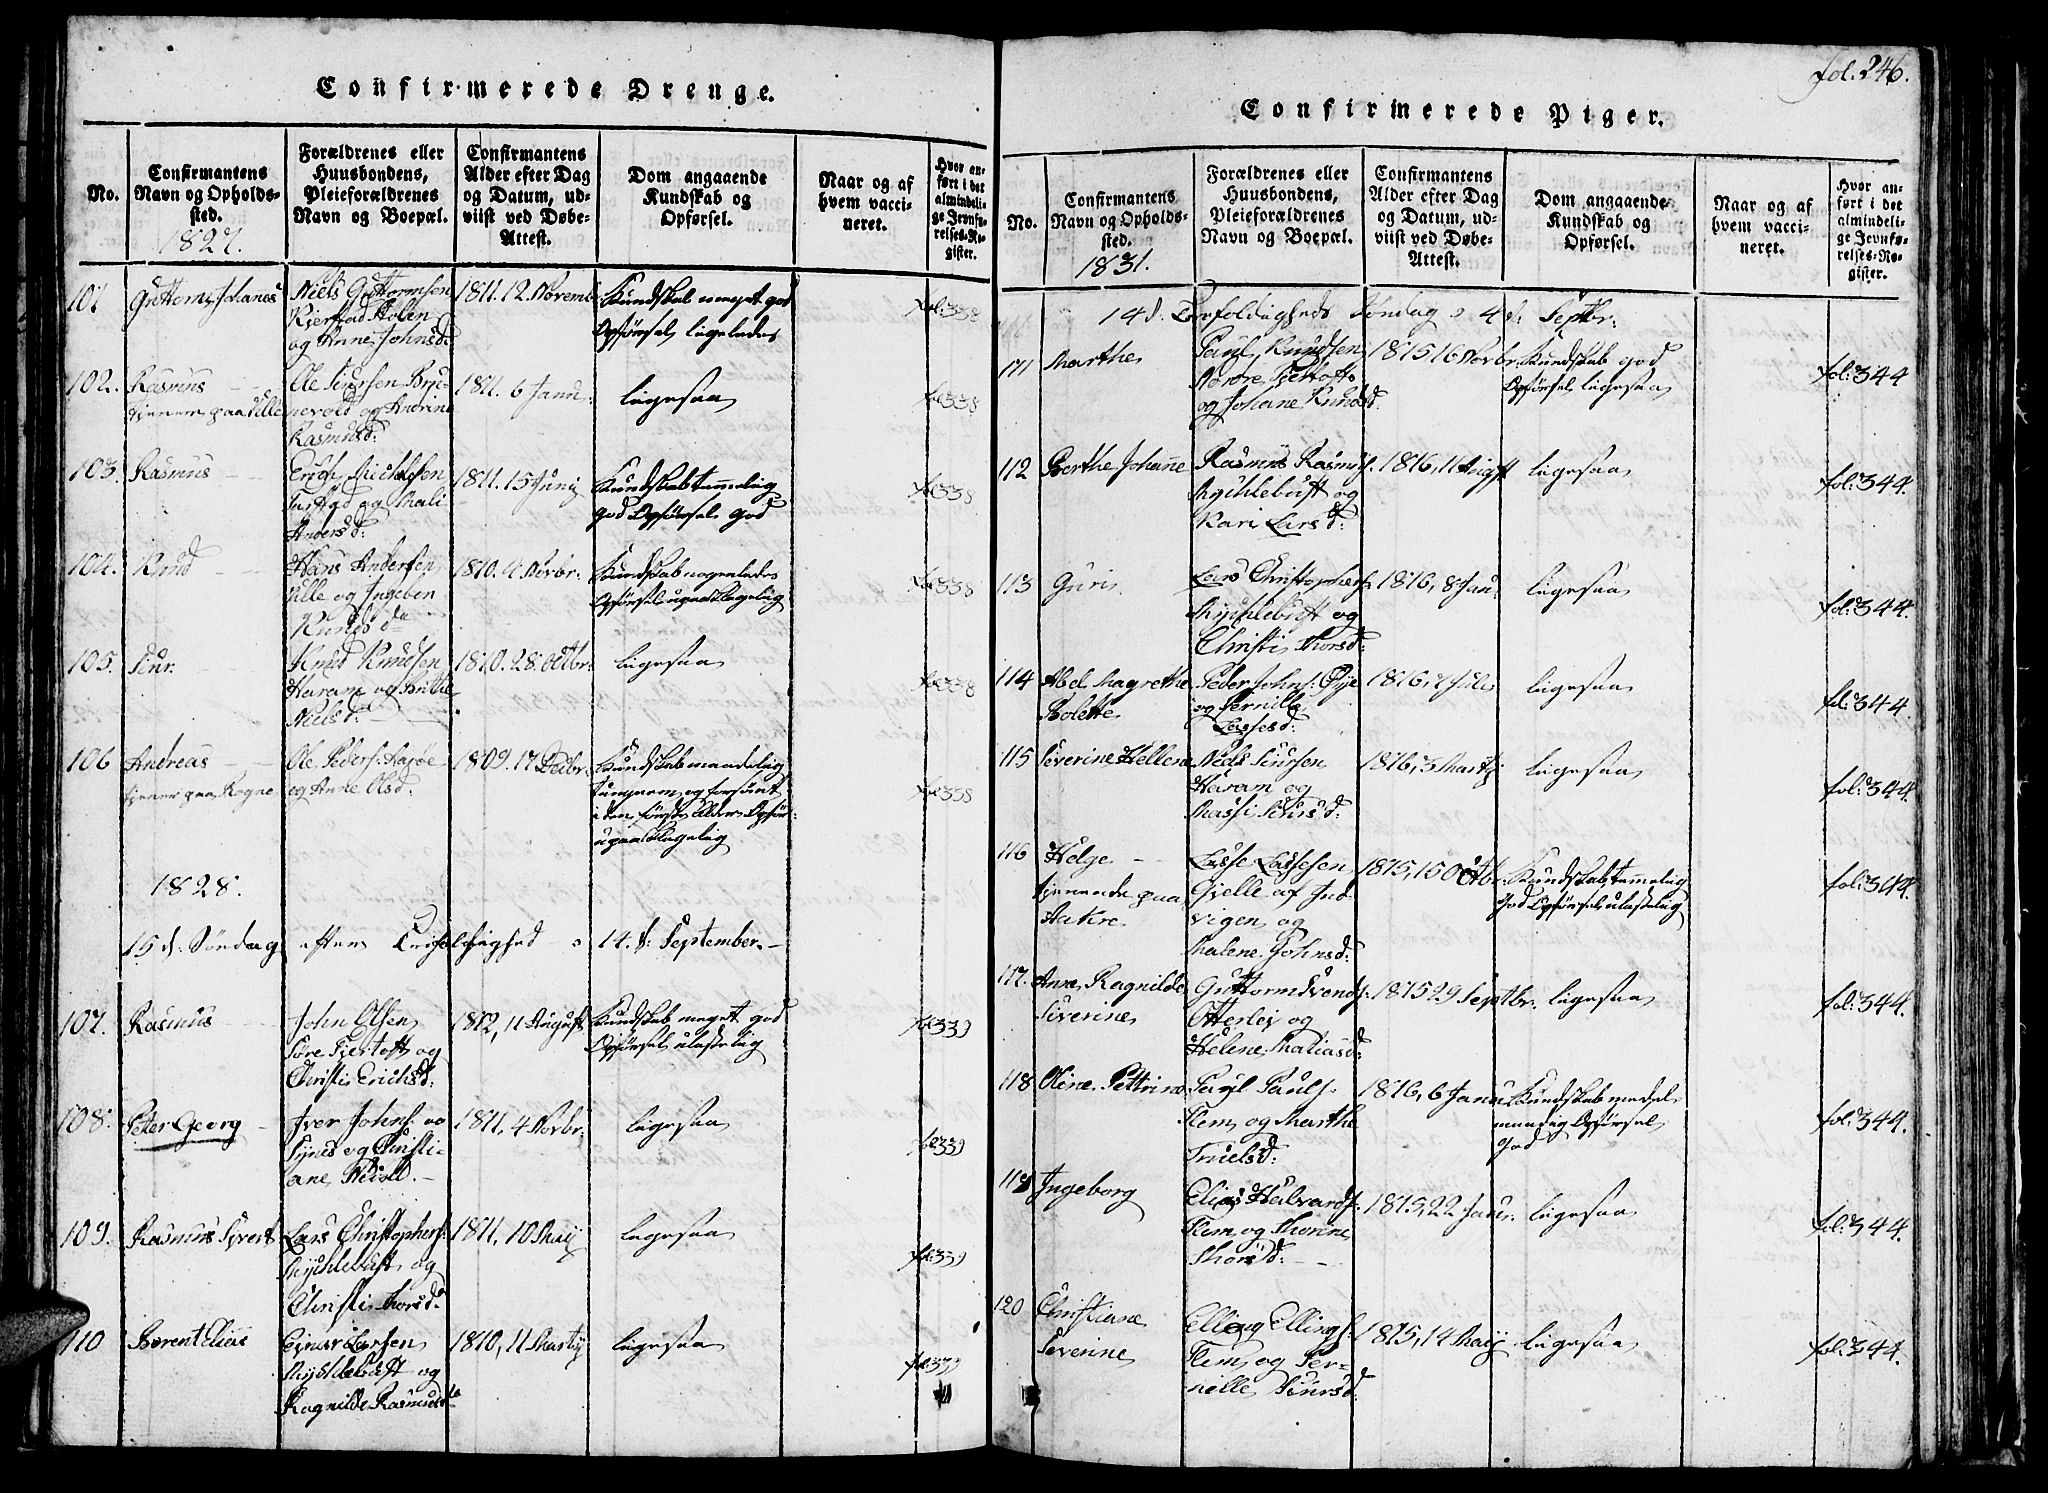 Confirmerede Drenge.
No.
Confirmantens Navn og Opholdssted.
1827.
Forældrenes eller Huusbondens, Pleieforældrenes Navn og Boepæl.
Confirmantens Alder efter Dag og Datum, udviist ved Døbe-Attest.
Dom angaaende Kundskab og Opførsel.
Naar og af hvem vaccineret.
Hvor anført i det almindelige Jevnførelses-Register.
101 Guttorm Johanes
Niels Guttormsen
Kjerstad Holen
og Anne Johnsd:
1811. 12. Novemb
Kundskab meget god
Opførsel ligeledes
fol: 338
102. Rasmus
tjener paa Ulle
Ole Siursen
og Andrine
Rasmusd:
1811. 6 Janu:
ligesaa
fol 338
103. Rasmus
Erich Michelsen
og Mali
Andersd:
1811. 15 Junij
Kundskab temmelig
god Opførsel god
fol 338
104. Knud
Hans Andersen
Ulle og Ingeben
Knudsda
1810. 4 Novbr:
Kundskab nogenledes
Opførsel upaaklagelig
fol 338
105. Siur.
Knud Knudsen
Haram og Berthe
Nielsd:
1810. 28. Octbr:
ligesaa
fol 338
106 Andreas
tjener paa Rogne
Ole Peders:
og Anne Olsd.
1809. 17 Decbr:
Kundskab maadelig
tungnem og forsømt
i den første Alder Opfør:
upaaklagelig
fol 338
1828.
15 d: Søndag efter Trefoldighed 14. d: September.
107. Rasmus
John Olsen
Søre Fjertoft og
Christi Erichsd:
1812, 11 August
Kundskab meget god
Opførsel ulastelig
fol 339
108. Peter Georg
Iver Johns:
Synes og Christiane
1811, 4 Novbr:
ligesaa
fol 339
109. Rasmus Sivert
Lars Christophers:
Mychlebust og
Christi Thorsd:
1811, 10 Maij
ligesaa
fol: 339
110 Berent Elias
Einar Larsen
Mychlebust og
Ragnilde Rasmusd
1810, 11 Martij
ligesaa
fol: 339
fol. 246.
Confirmerede Piger.
No.
Confirmantens Navn og Opholdssted.
1831.
Forældrenes eller Huusbondens, Pleieforældrenes Navn og Boepæl.
Confirmantens Alder efter Dag og Datum, udviist ved Døbe-Attest.
Dom angaaende Kundskab og Opførsel.
Naar og af hvem vaccineret.
Hvor anført i det almindelige Jevnførelses-Register.
14 d. Trefoldigheds Søndag 4 d: Septbr:
111 Marthe
Paul Knudsen
Nordre Fjertoft
og Johane Knudsd:
1815 16 Novbr:
Kundskab god
Opførsel ligesaa
fol: 344
112 Berthe Johanne
Rasmus Rasmus:
Mychlebust og
Kari Larsd:
1816, 11 August
ligesaa
fol: 344.
113 Guri
Lars Christophers:
Mychlebust og
Christi Thorsd:
1816, 8 Jan:
ligesaa
fol: 344.
114 Abel Magrethe
Bolette
Peder Johns:
og Pernille
Lassesd:
1816, 7 Juli
ligesaa
fol: 344.
115 Severine Hellene
Niels Siursen
Haram og
Massi Siursd:
1816, 3 Martij
ligesaa
fol: 344.
116 Helge
tjenende paa
Aakre
Lasse Lassesen
Gjelle af Indvigen og
Malene Johnsd:
1815, 15 Octbr:
Kundskab temmelig
god Opførsel ulastelig
fol: 344.
117. Anne Ragnilde
Siverine
Guttorm Svends:
Otterlej og
Helene Matiasd:
1815 29 Septbr.
ligesaa
fol: 344.
118 Oline Pettrine
Paul Pauls:
Flem og Marthe
Truelsd:
1816, 6 Janu
Kundskab medelmaadig Opførsel
god
fol: 344.
119 Ingeborg
Elias Halvards:
Flem og Thorine
Thorsd:
1815, 22 Janr.
ligesaa
fol: 344.
120 Christiane
Severine
Elling Ellings:
Flem og Pernille Siursd:
1815, 14 Maij
ligesaa
fol: 344.